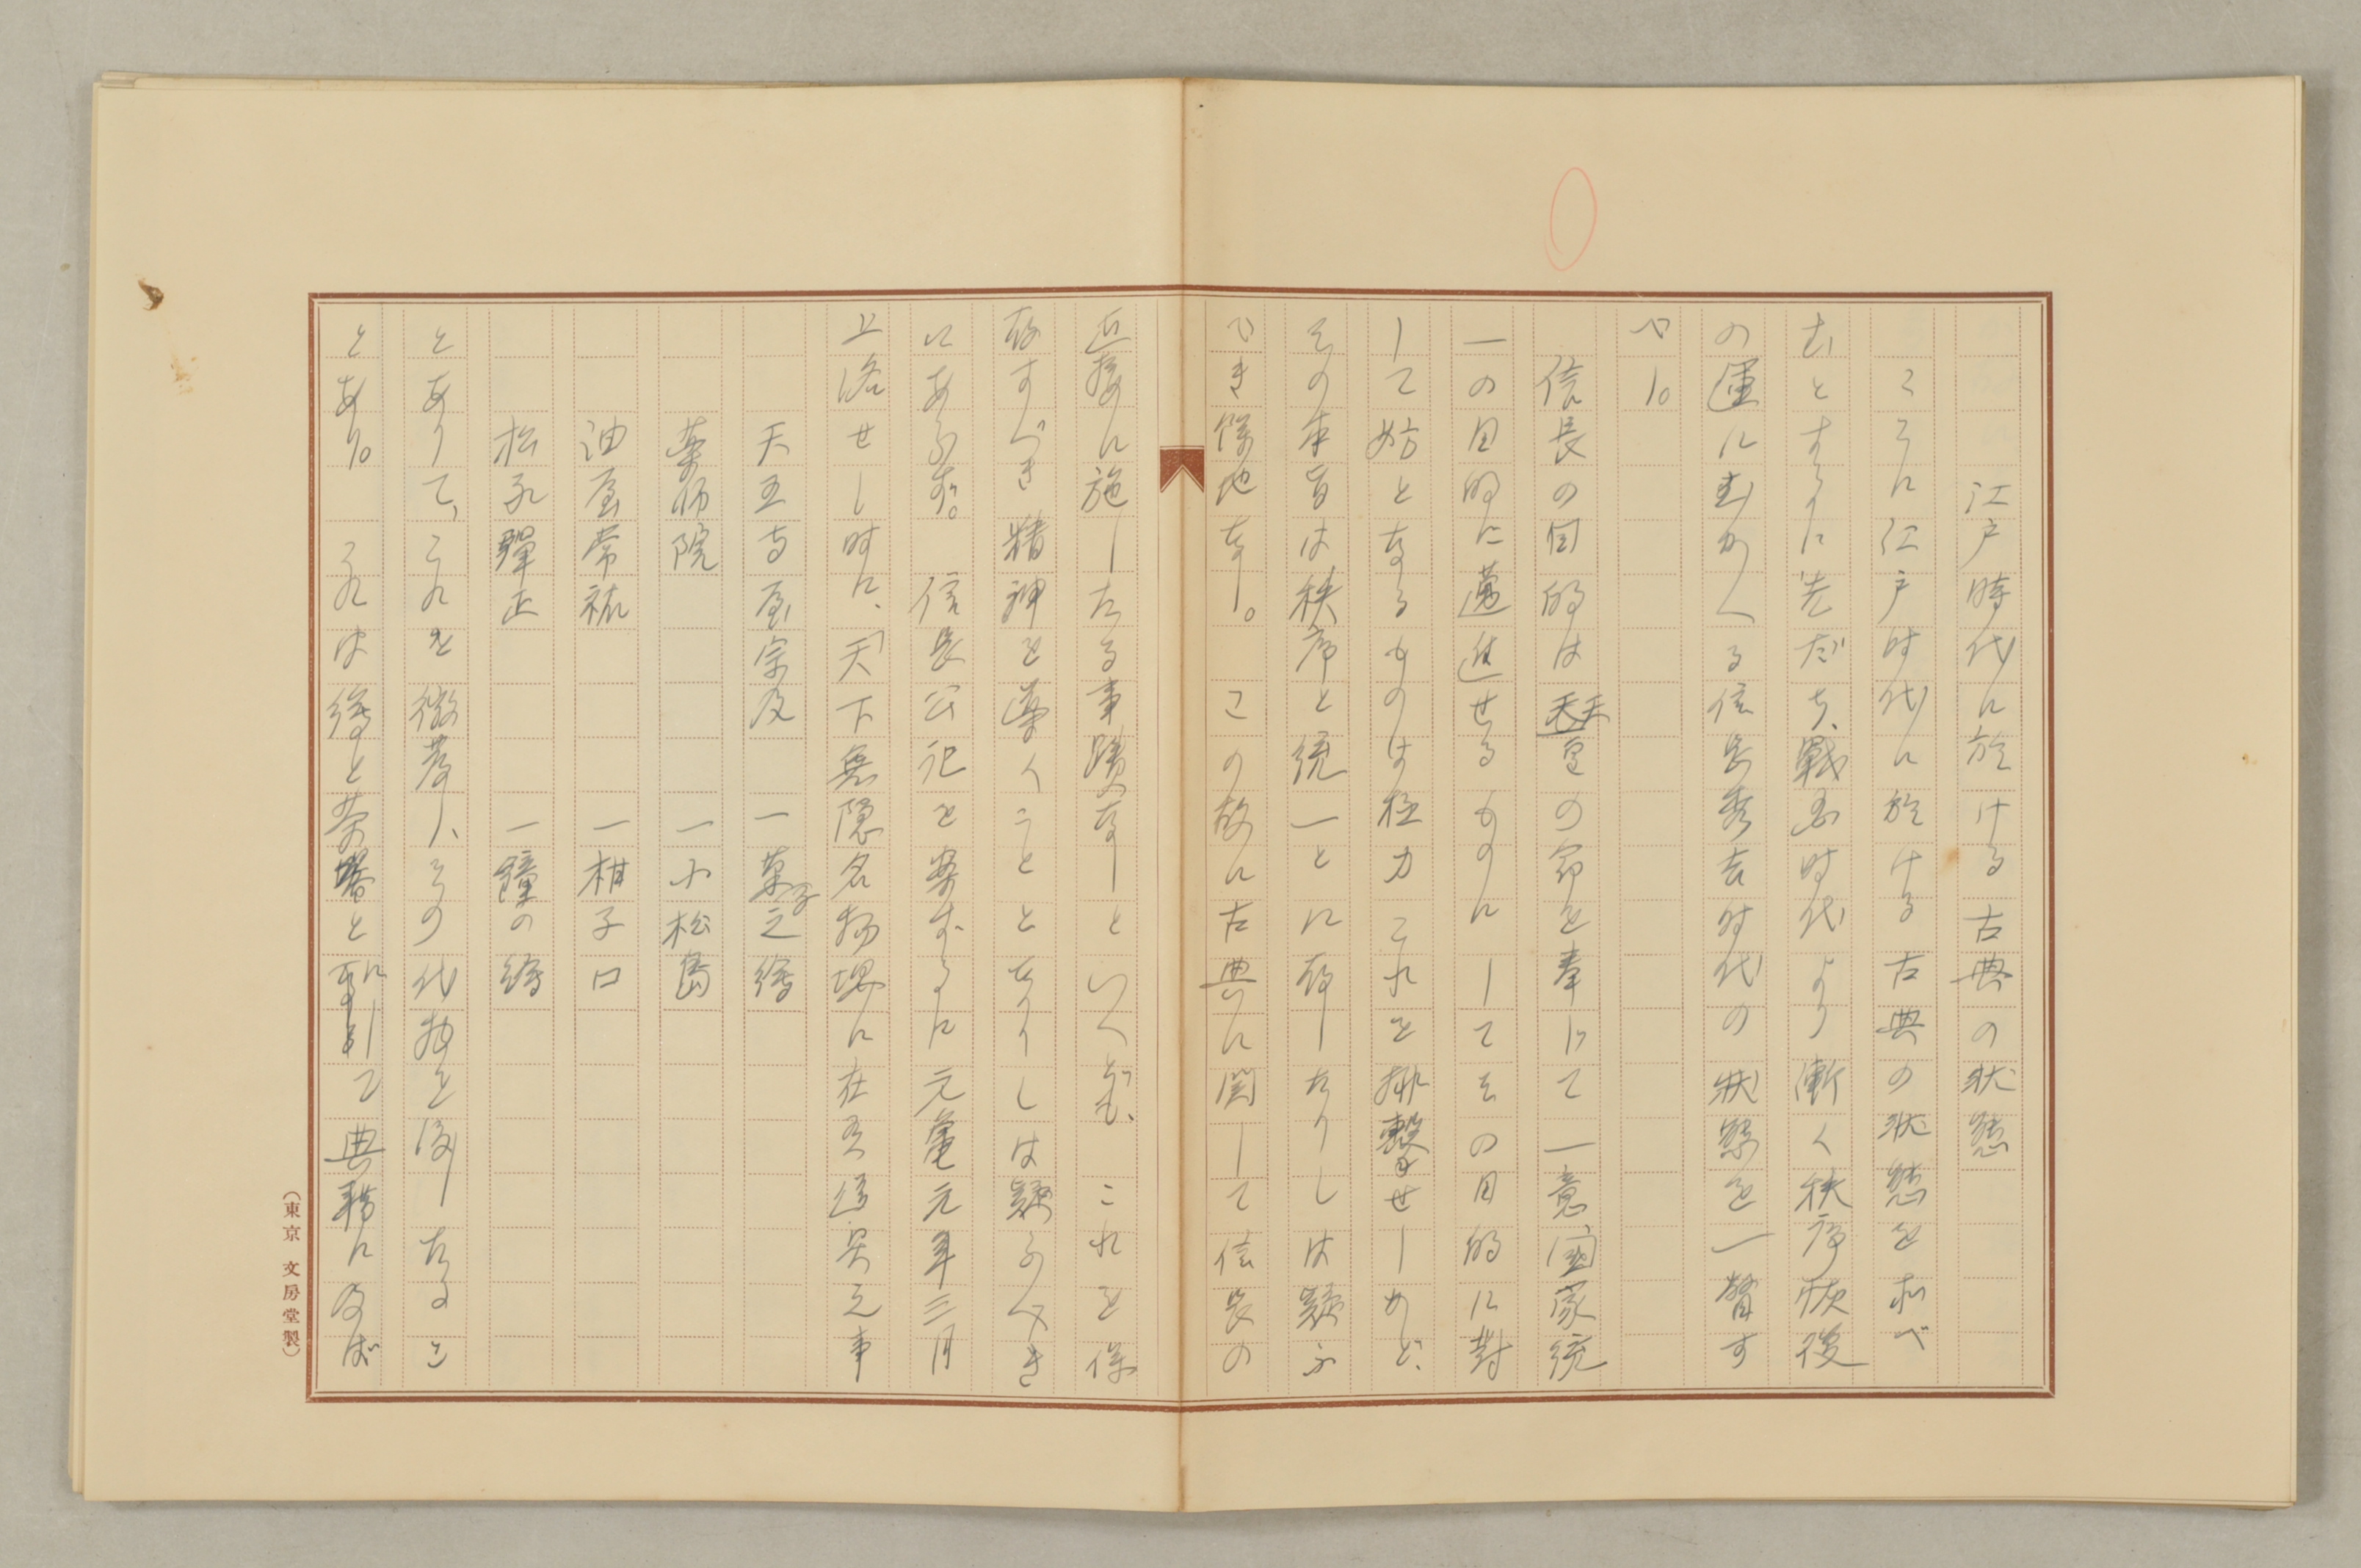 江戸時代に於ける古典の状態
こゝに江戸時代に於ける古典の状態を私べ
むとするに先だち、戦國時代より漸く秩序恢復
の運にむかへる信長秀吉時代の状態を一瞥す
べし。
信長の目的は天皇の命を奉じて一意國家統
一の目的に邁進せるものにしてその目的に對
して妨となるものは極力これを排撃せしめど、
その本旨は秩序と統一とに存したりしは疑ふ
べき餘地なし。この故に古典に関して信長の
直接に施したる事蹟なしといへども、これを保
存すべき精神を導くことゝなりしは疑ふべき
にあらず。信長公記を案ずるに元亀元年三月
上洛せし時に、「天下無隠名物堺に在之道具之事
天王寺屋宗及 一菓子之繪
薬師院 一小松島
油屋常祐 一柑子口
松永彈正 一鐘の繪
とありて、これを徴発し、その代物を渡したるこ
とあり。これは繪と茶器とに引て典籍に及ば
(東京 文房堂製)